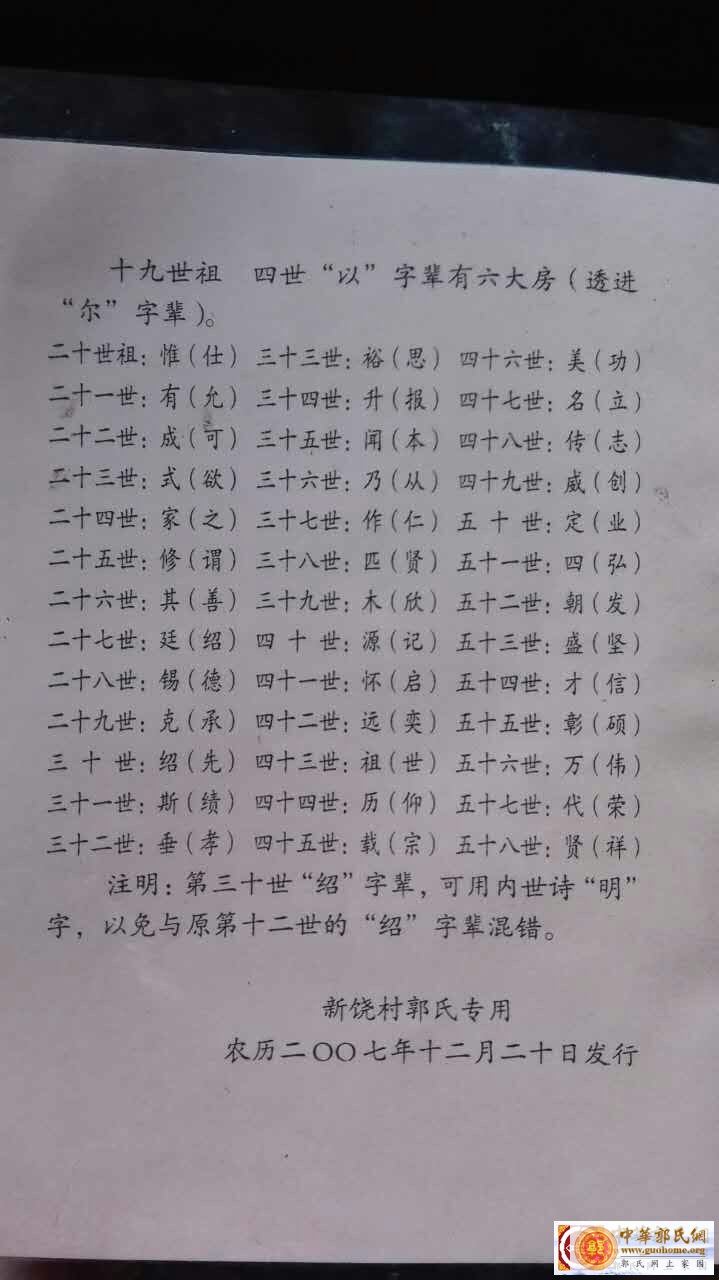 十九世祖　四世“以”字辈有六大房（透进
“尔”字辈）。
二十世祖：惟（仕）三十三世：裕（思）四十六世：美（功）
二十一世：有（允）三十四世：升（报）四十七世：名（立）
二十二世：成（可）三十五世：闻（本）四十八世：传（志）
二十三世：式（欲）三十六世：乃（从）四十九世：威（创）
二十四世：家（之）三十七世：作（仁）五十世：定（业）
二十五世：修（谓）三十八世：匹（贤）五十一世：四（弘）
二十六世：其（善）三十九世：木（欣）五十二世：朝（发）
二十七世：廷（绍）四十世：源（记）五十三世：盛（坚）
二十八世：锡（德）四十一世：怀（启）五十四世：才（信）
二十九世：克（承）四十二世：远（奕）五十五世：彰（硕）
三十世：绍（先）四十三世：祖（世）五十六世：万（伟）
三十一世：斯（绩）四十四世：历（仰）五十七世：代（荣）
三十二世：垂（孝）四十五世：载（宗）五十八世：贤（祥）
注明：第三十世“绍”字辈，可用内世诗“明”
字，以免与原第十二世的“绍”字辈混错。
新饶村郭氏专用
农历二〇〇七年十二月二十日发行
中華郭氏網
www.guohome.org
郭氏网上家园